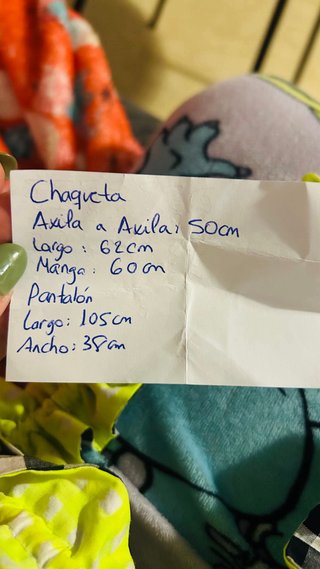 Chaqueta
Axila a Axila: 50cm
Largo: 62cm
Manga: 60cm
Pantalón
Largo: 105cm
Ancho: 38cm